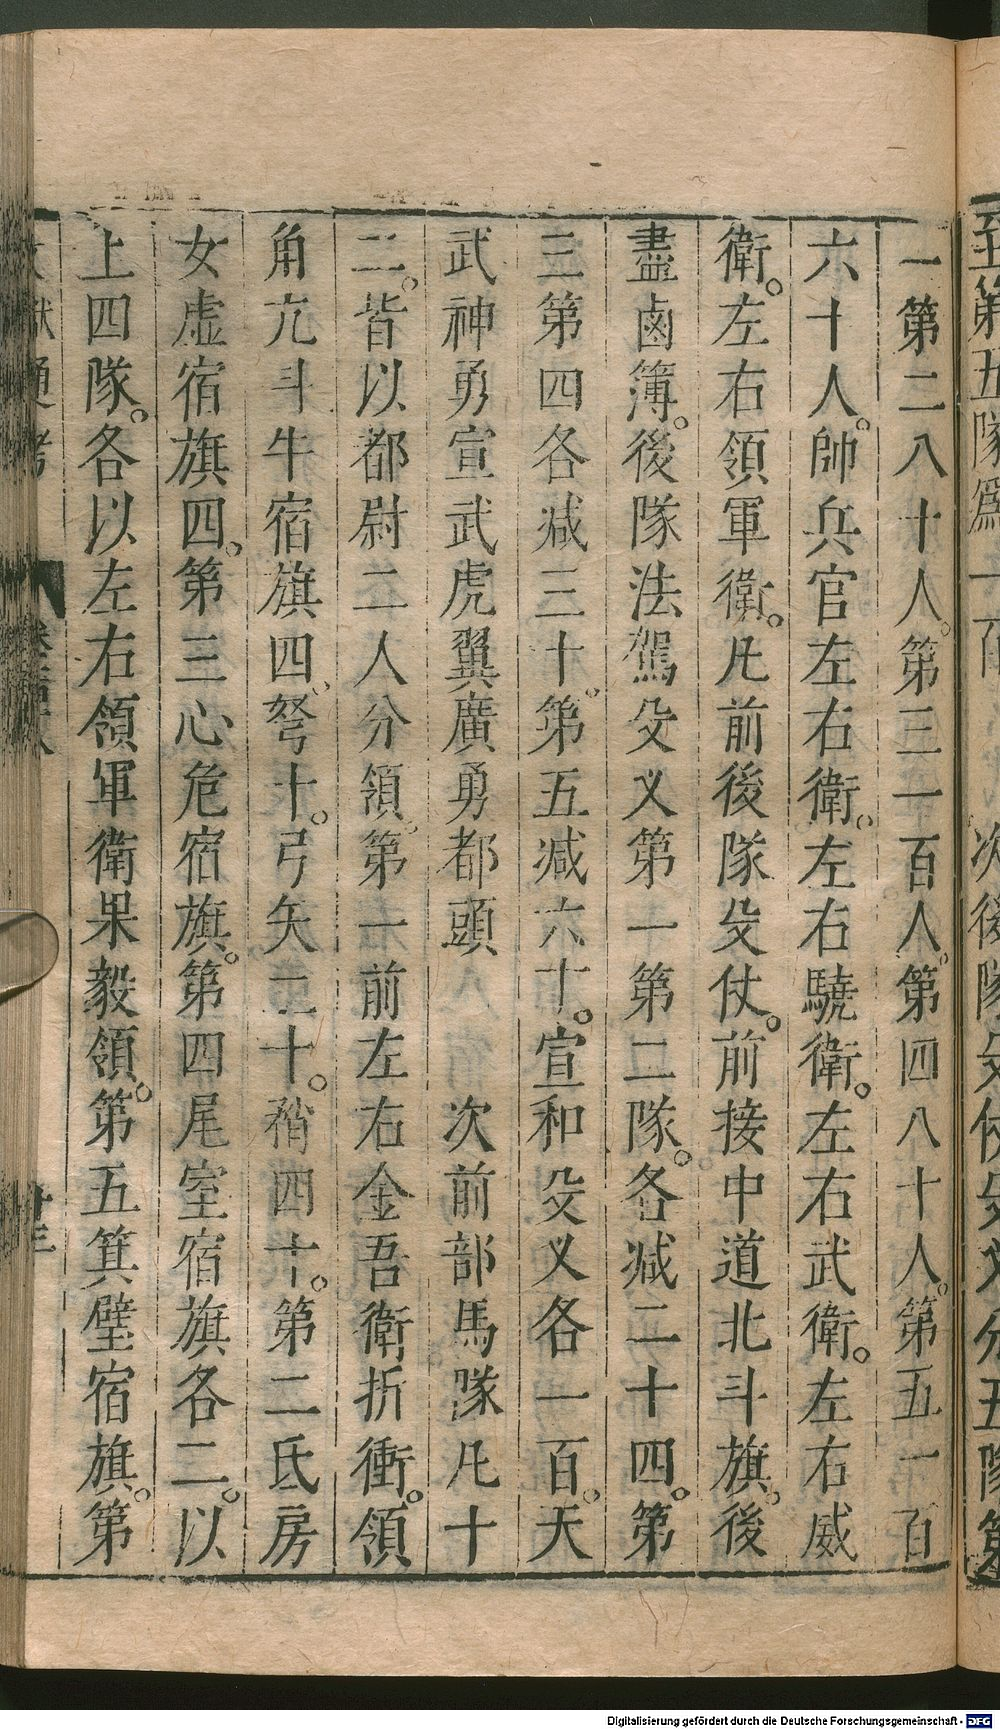 一第二八十人。第三一百人。第四八十人。第五一百
六十人。帥兵官左右衛。左右驍衛。左右武衛。左右威
衛。左右領軍衛。凡前後隊殳仗。前接中道北斗旗。後
盡鹵簿。後隊法駕殳叉第一第二隊。各减二十四。第
三第四各减三十。第五减六十。宣和殳叉各一百。天
武神勇宣武虎翼廣勇都頭　次前部馬隊凡十
二。皆以都尉二人分領。第一前左右金吾衛折衝。領
角亢斗牛宿旗四。弩十。弓矢二十。矟四十。第二氐房
女虚宿旗四。第三心危宿旗。第四尾室宿旗各二。以
上四隊。各以左右領軍衛果毅領。第五箕壁宿旗。第
通考
Digitalisierung gefördert durch die Deutsche Forschungsgemeinschaft - DFG